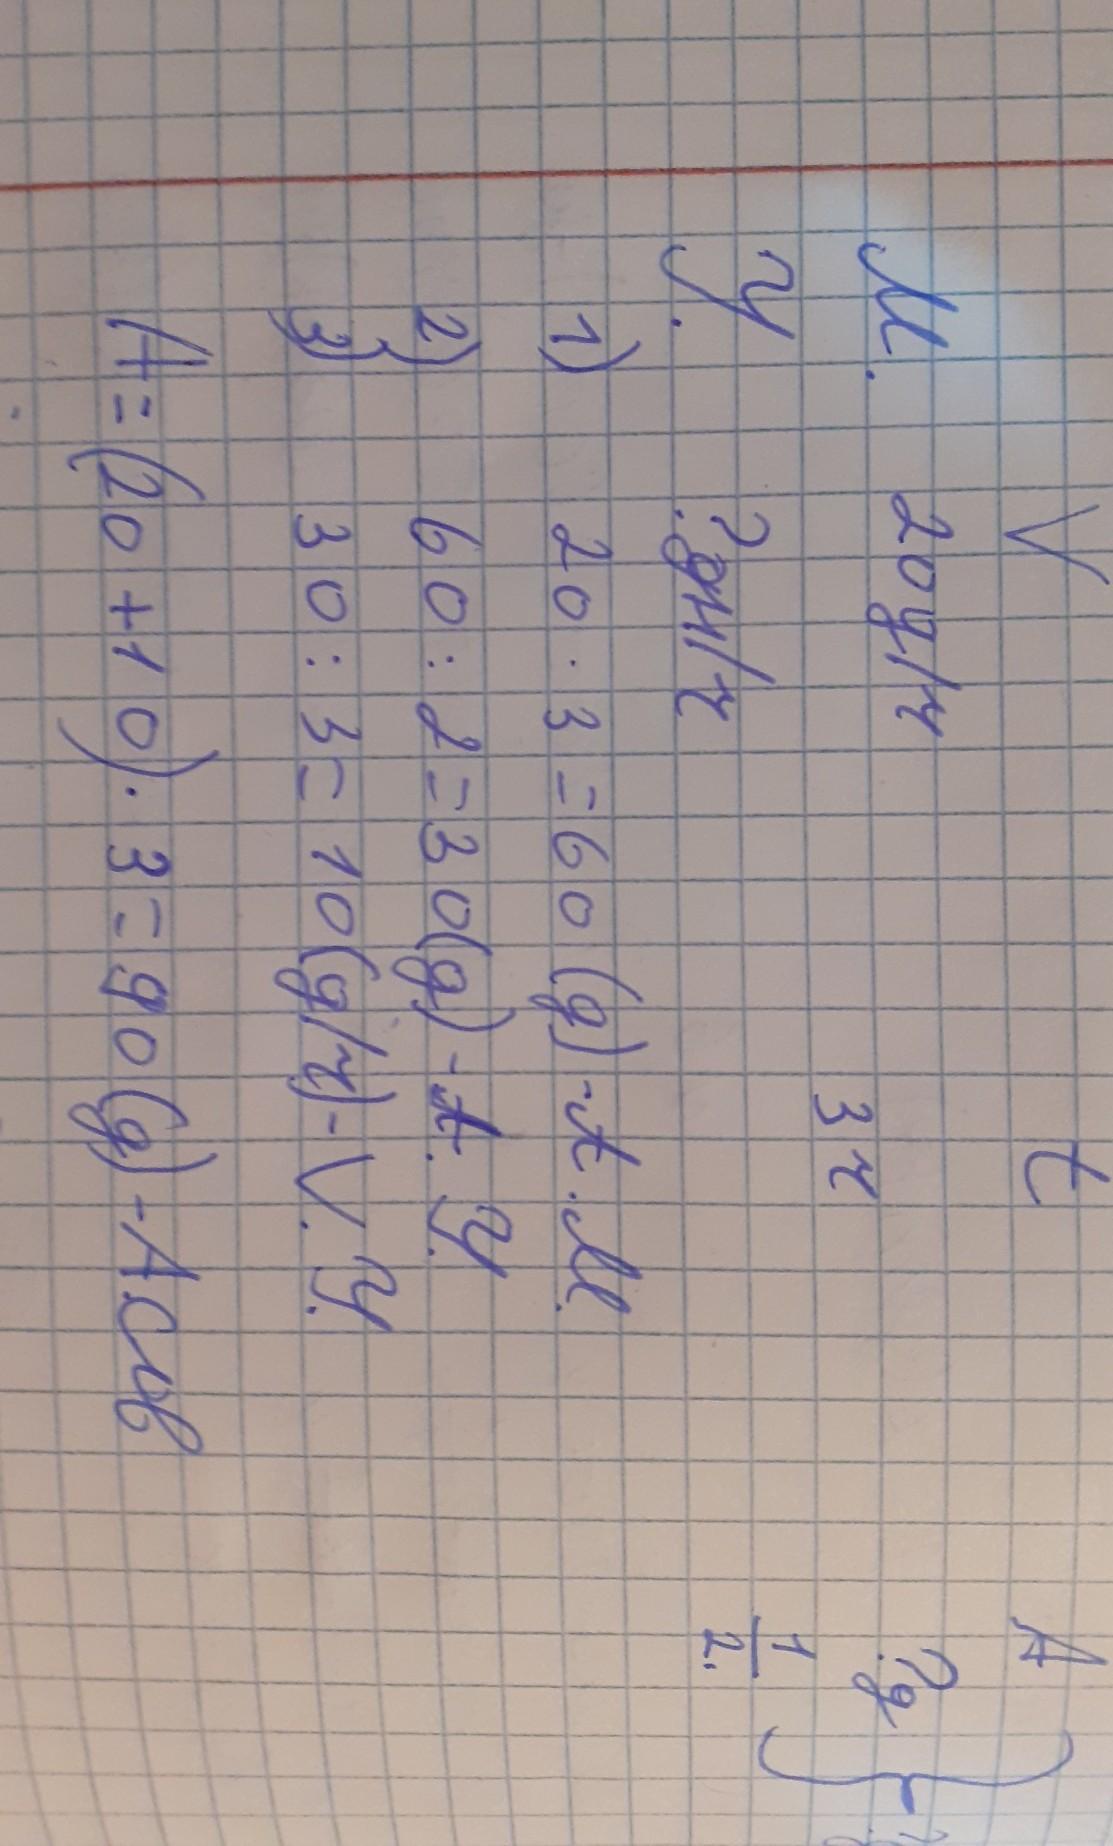 V t A
М. 20 д/ч ?д
3 ч } - ?
У. ? дн/ч 1/2
1) 20 · 3 = 60 (д) - A. М.
2) 60 : 2 = 30 (д) - A. У.
3) 30 : 3 = 10 (д/ч) - V. У.
A = (20 + 10) · 3 = 90 (д) - А сов